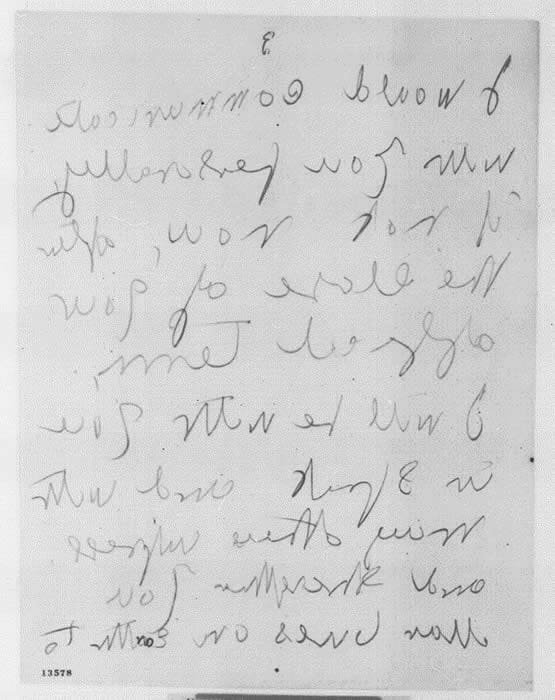 3
I would Communicate
with you personally
if not now, after
the close of your
official Term,
I will be with you
in Spirit and with
many others
and Strengthen you
than on Earth To
13578